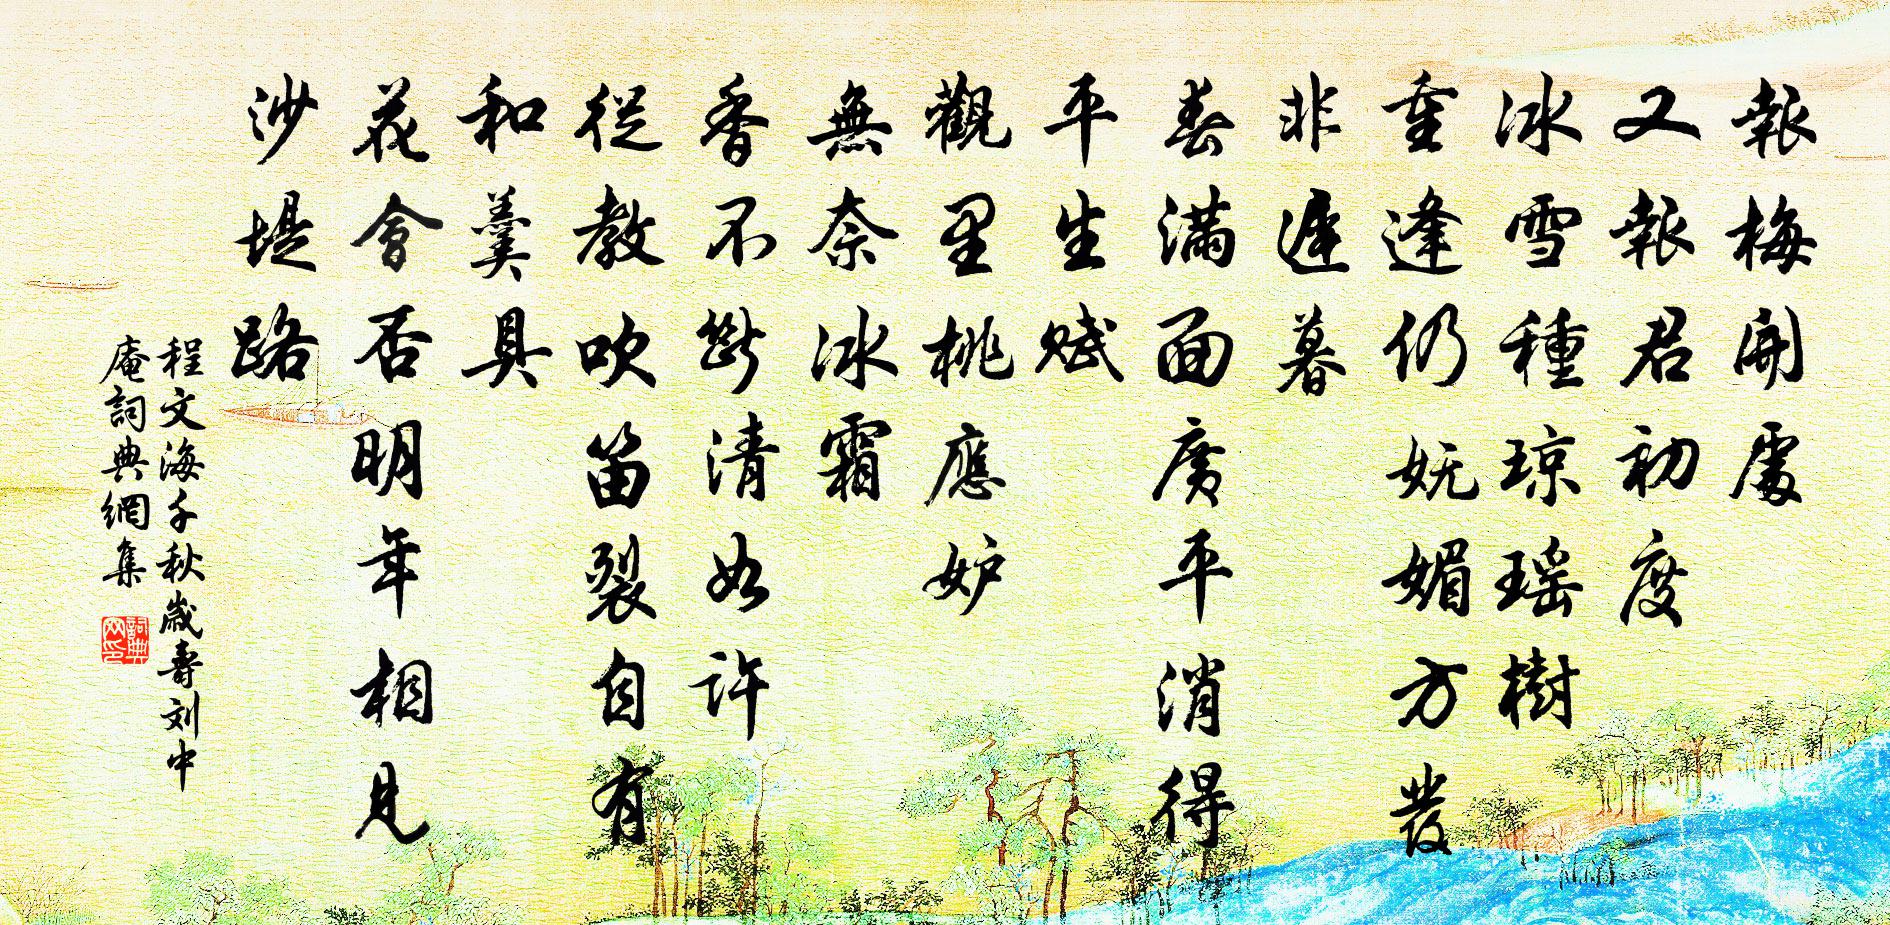 報梅開處
又報君初度
冰雪種琼瑶樹
重逢仍妩媚方發
非遲暮
春滿面廣平消得
平生賦
觀里桃應妒
無奈冰霜
香不斷清如許
從教吹笛裂自有
和羹具
花會否明年相見
沙堤路
程文海千秋歲壽刘中
庵詞典網集
詞典网印